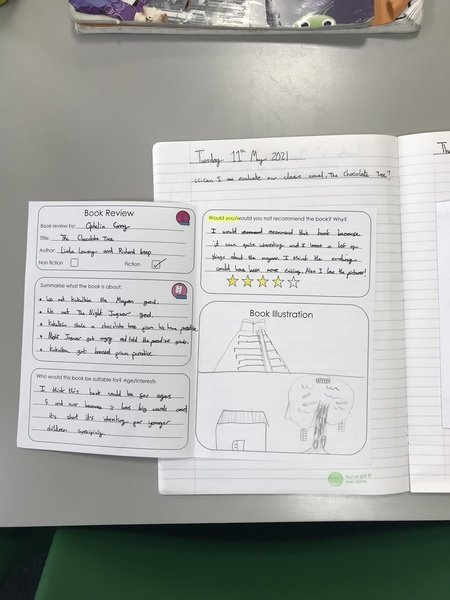 Tuesday 11th May 2021
LC: Can I evaluate our class novel, The Chocolate Tree?
Book Review
Book review by: Ophelia
Title: The Chocolate Tree
Author: Linda Lowery and Richard keep
Non fiction
Fiction
Summarise what the book is about:
We met Kukulkan the Mayan god.
We met The Night Jaguar god.
Kukulkan stole a chocolate tree from his home paradise.
Night Jaguar got angry and told the paradise gods.
Kukulkan got banned from paradise.
Who would this book be suitable for? Age/Interests
I think this book would be for ages
5 and over because it has big words and
it's about it's interesting for younger
children
Would you/would you not recommend the book? Why?
I would recommend this book because
it was quite interesting and I learnt a lot of
things about the mayans. I think the ending
could have been more exciting. Also I love the pictures!
Book Illustration
You've got it!
Well done.